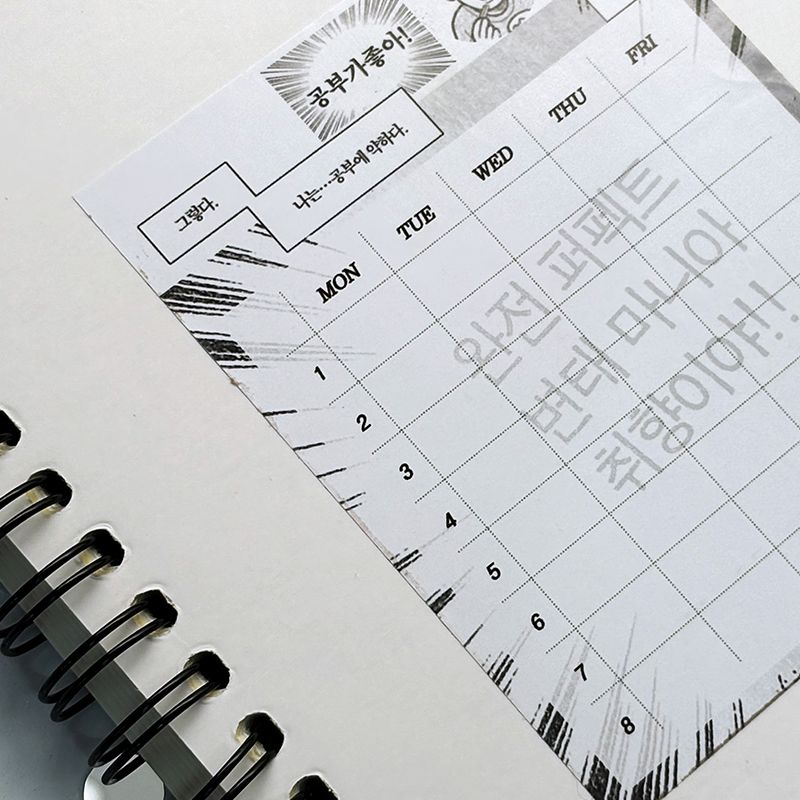 공부가좋아!
그렇다.
나는...공부에 약하다.
MON TUE WED THU FRI
1
2
3
4
5
6
7
8
완전 퍼펙트
변태 마니아
취향이야!!